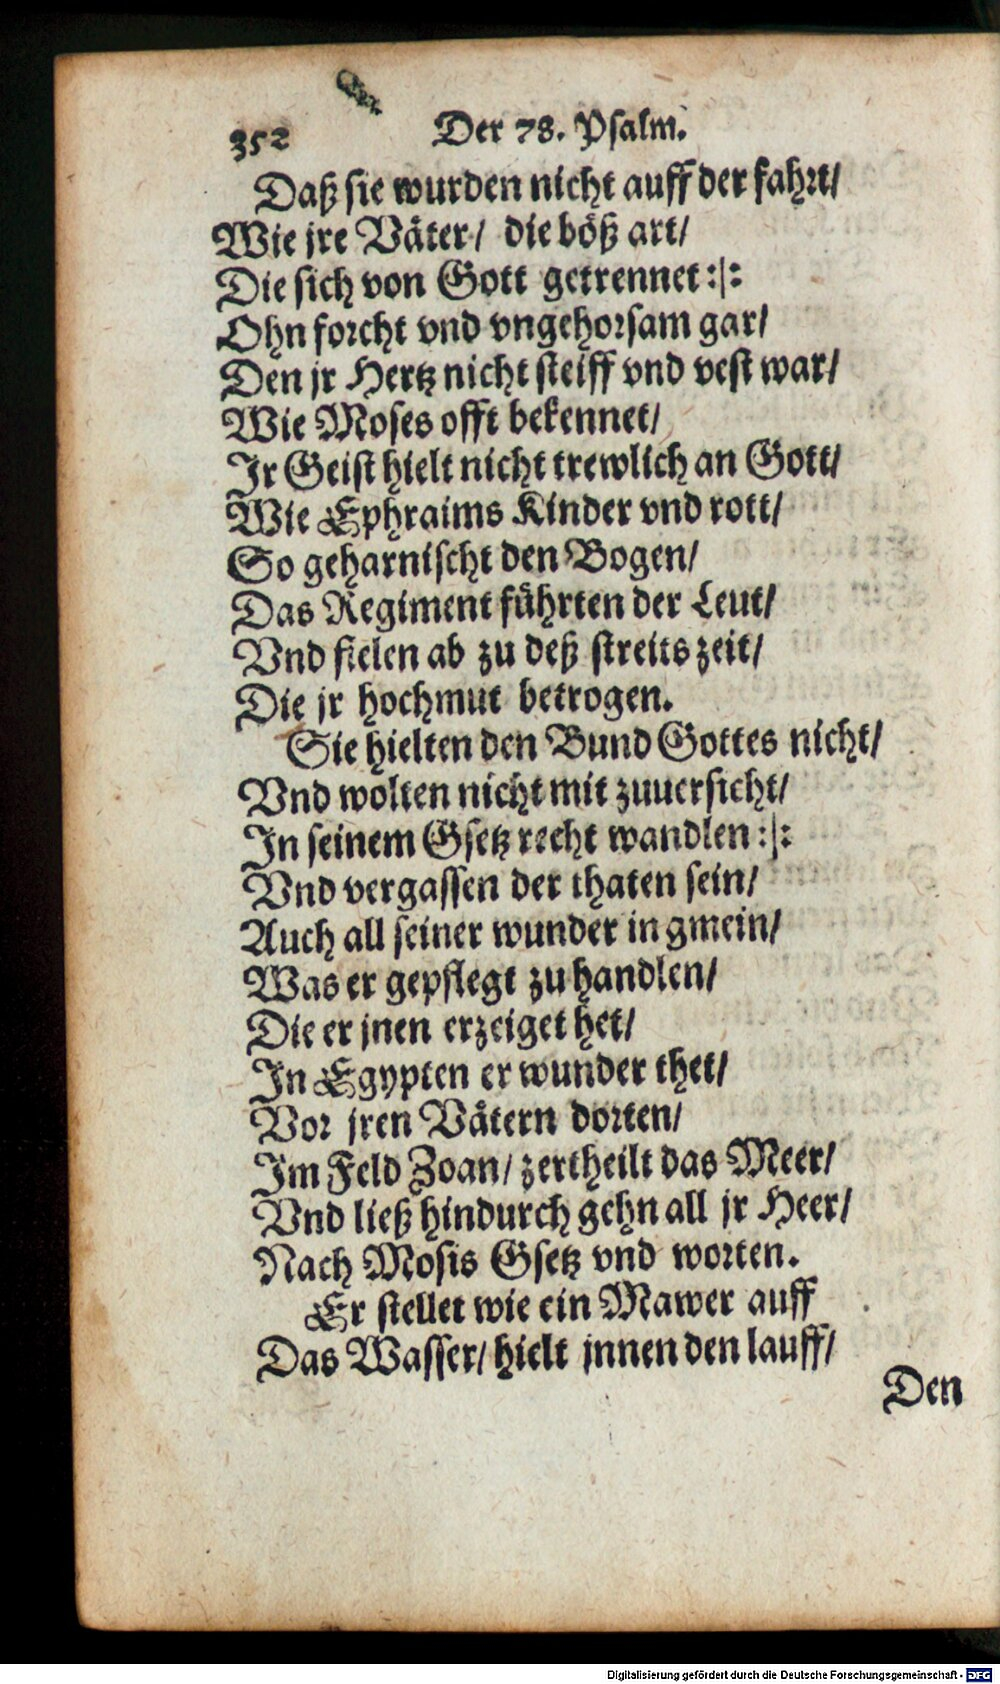 352 Der 78. Psalm.
Daß sie wurden nicht auff der fahrt/
Wie jre Väter/ die böß art/
Die sich von Gott getrennet :|:
Ohn forcht vnd vngehorsam gar/
Den jr Hertz nicht steiff vnd vest war/
Wie Moses offt bekennet/
Jr Geist hielt nicht trewlich an Gott/
Wie Ephraims Kinder vnd rott/
So geharnischt den Bogen/
Das Regiment führten der Leut/
Vnd fielen ab zu deß streits zeit/
Die jr hochmut betrogen.
Sie hielten den Bund Gottes nicht/
Vnd wolten nicht mit zuuersicht/
In seinem Gsetz recht wandlen :|:
Vnd vergassen der thaten sein/
Auch all seiner wunder in gmein/
Was er gepflegt zu handlen/
Die er jnen erzeiget het/
In Egypten er wunder thet/
Vor jren Vätern dorten/
Im Feld Zoan/ zertheilt das Meer/
Vnd ließ hindurch gehn all jr Heer/
Nach Mosis Gsetz vnd worten.
Er stellet wie ein Mawer auff
Das Wasser/ hielt jnnen den lauff/
Den
Digitalisierung gefördert durch die Deutsche Forschungsgemeinschaft - DFG